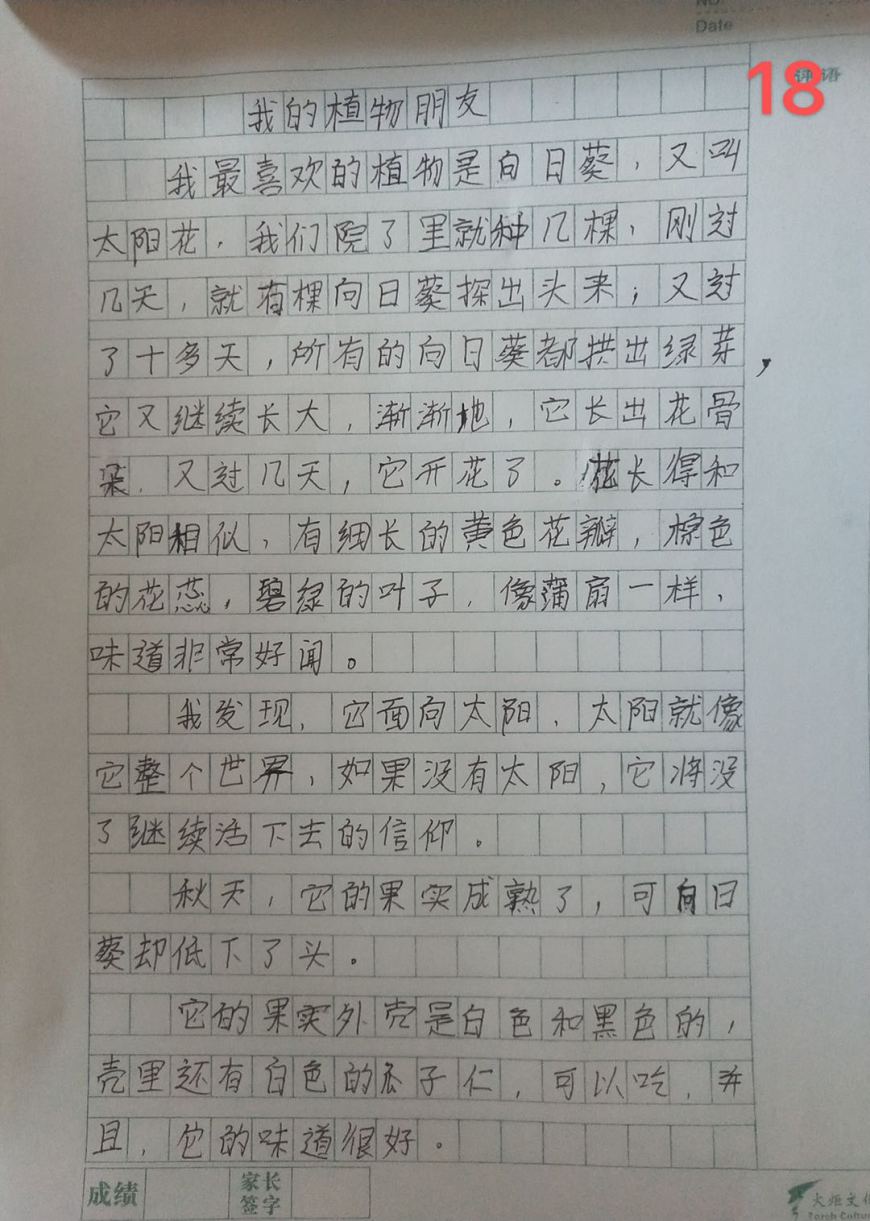 NO.
Date
18
评语
我的植物朋友
我最喜欢的植物是向日葵，又叫
太阳花，我们院了里就种几棵，刚过
几天，就有棵向日葵探出头来；又过
了十多天，所有的向日葵都拱出绿芽，
它又继续长大，渐渐地，它长出花骨
朵．又过几天，它开花了。花长得和
太阳相似，有细长的黄色花瓣，棕色
的花蕊，碧绿的叶子，像蒲扇一样，
味道非常好闻。
我发现，它面向太阳，太阳就像
它整个世界，如果没有太阳，它将没
了继续活下去的信仰。
秋天，它的果实成熟了，可向日
葵却低下了头。
它的果实外壳是白色和黑色的，
壳里还有白色的瓜子仁，可以吃，并
且，它的味道很好。
成绩
家长
签字
火炬文化
Torch Cultur